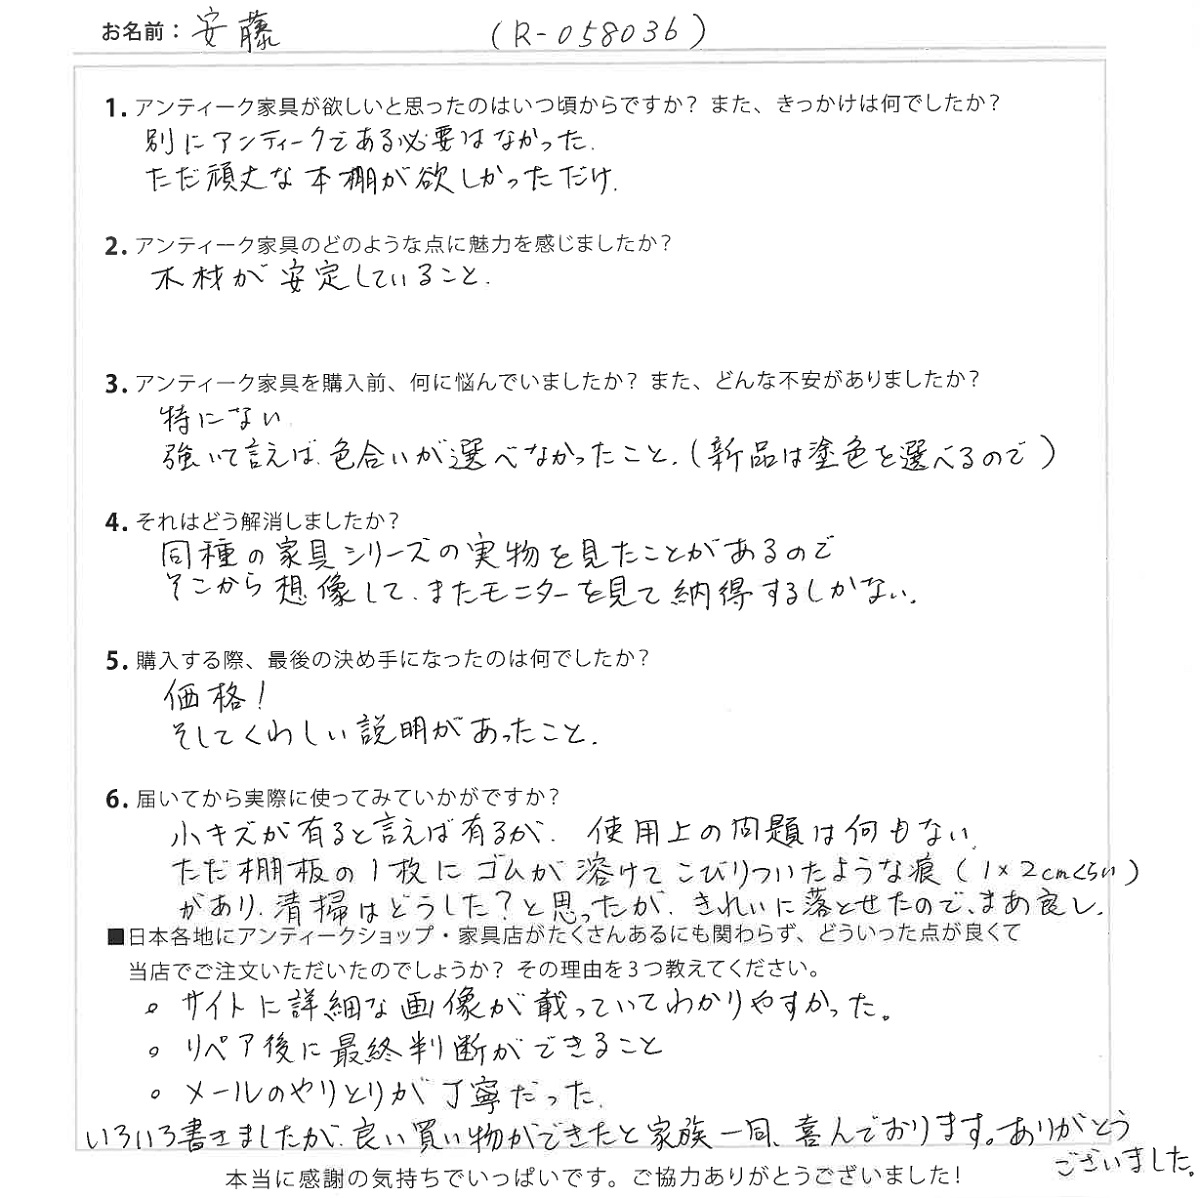 お名前： 安藤 (R-058036)
1. アンティーク家具が欲しいと思ったのはいつ頃からですか？ また、きっかけは何でしたか？
別にアンティークである必要はなかった.
ただ頑丈な本棚が欲しかっただけ.
2. アンティーク家具のどのような点に魅力を感じましたか？
木材が安定していること.
3. アンティーク家具を購入前、何に悩んでいましたか？ また、どんな不安がありましたか？
特にない
強いて言えば、色合いが選べなかったこと.（新品は塗色を選べるので）
4. それはどう解消しましたか？
同種の家具シリーズの実物を見たことがあるので
そこから想像して、またモニターを見て納得するしかない.
5. 購入する際、最後の決め手になったのは何でしたか？
価格！
そしてくわしい説明があったこと.
6. 届いてから実際に使ってみていかがですか？
小キズが有ると言えば有るが、使用上の問題は何もない.
ただ棚板の1枚にゴムが溶けてこびりついたような痕（1×2cmくらい）
があり、清掃はどうした？と思ったが、きれいに落とせたので、まあ良し.
■日本各地にアンティークショップ・家具店がたくさんあるにも関わらず、どういった点が良くて
当店でご注文いただいたのでしょうか？ その理由を３つ教えてください。
。サイトに詳細な画像が載っていてわかりやすかった。
。リペア後に最終判断ができること
。メールのやりとりが丁寧だった.
いろいろ書きましたが、良い買い物ができたと家族一同、喜んでおります。ありがとう
ございました。
本当に感謝の気持ちでいっぱいです。ご協力ありがとうございました！